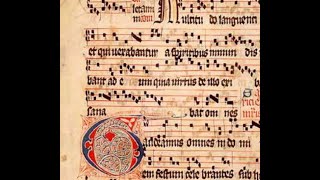 Multitu do languenti
et qui uexabantur a spiritibus inmun dis
bant ad e um quia uirtus de illo exi
sana bat om nes
Gaudeamus omnes in do mi
em festum cele brantes sub h